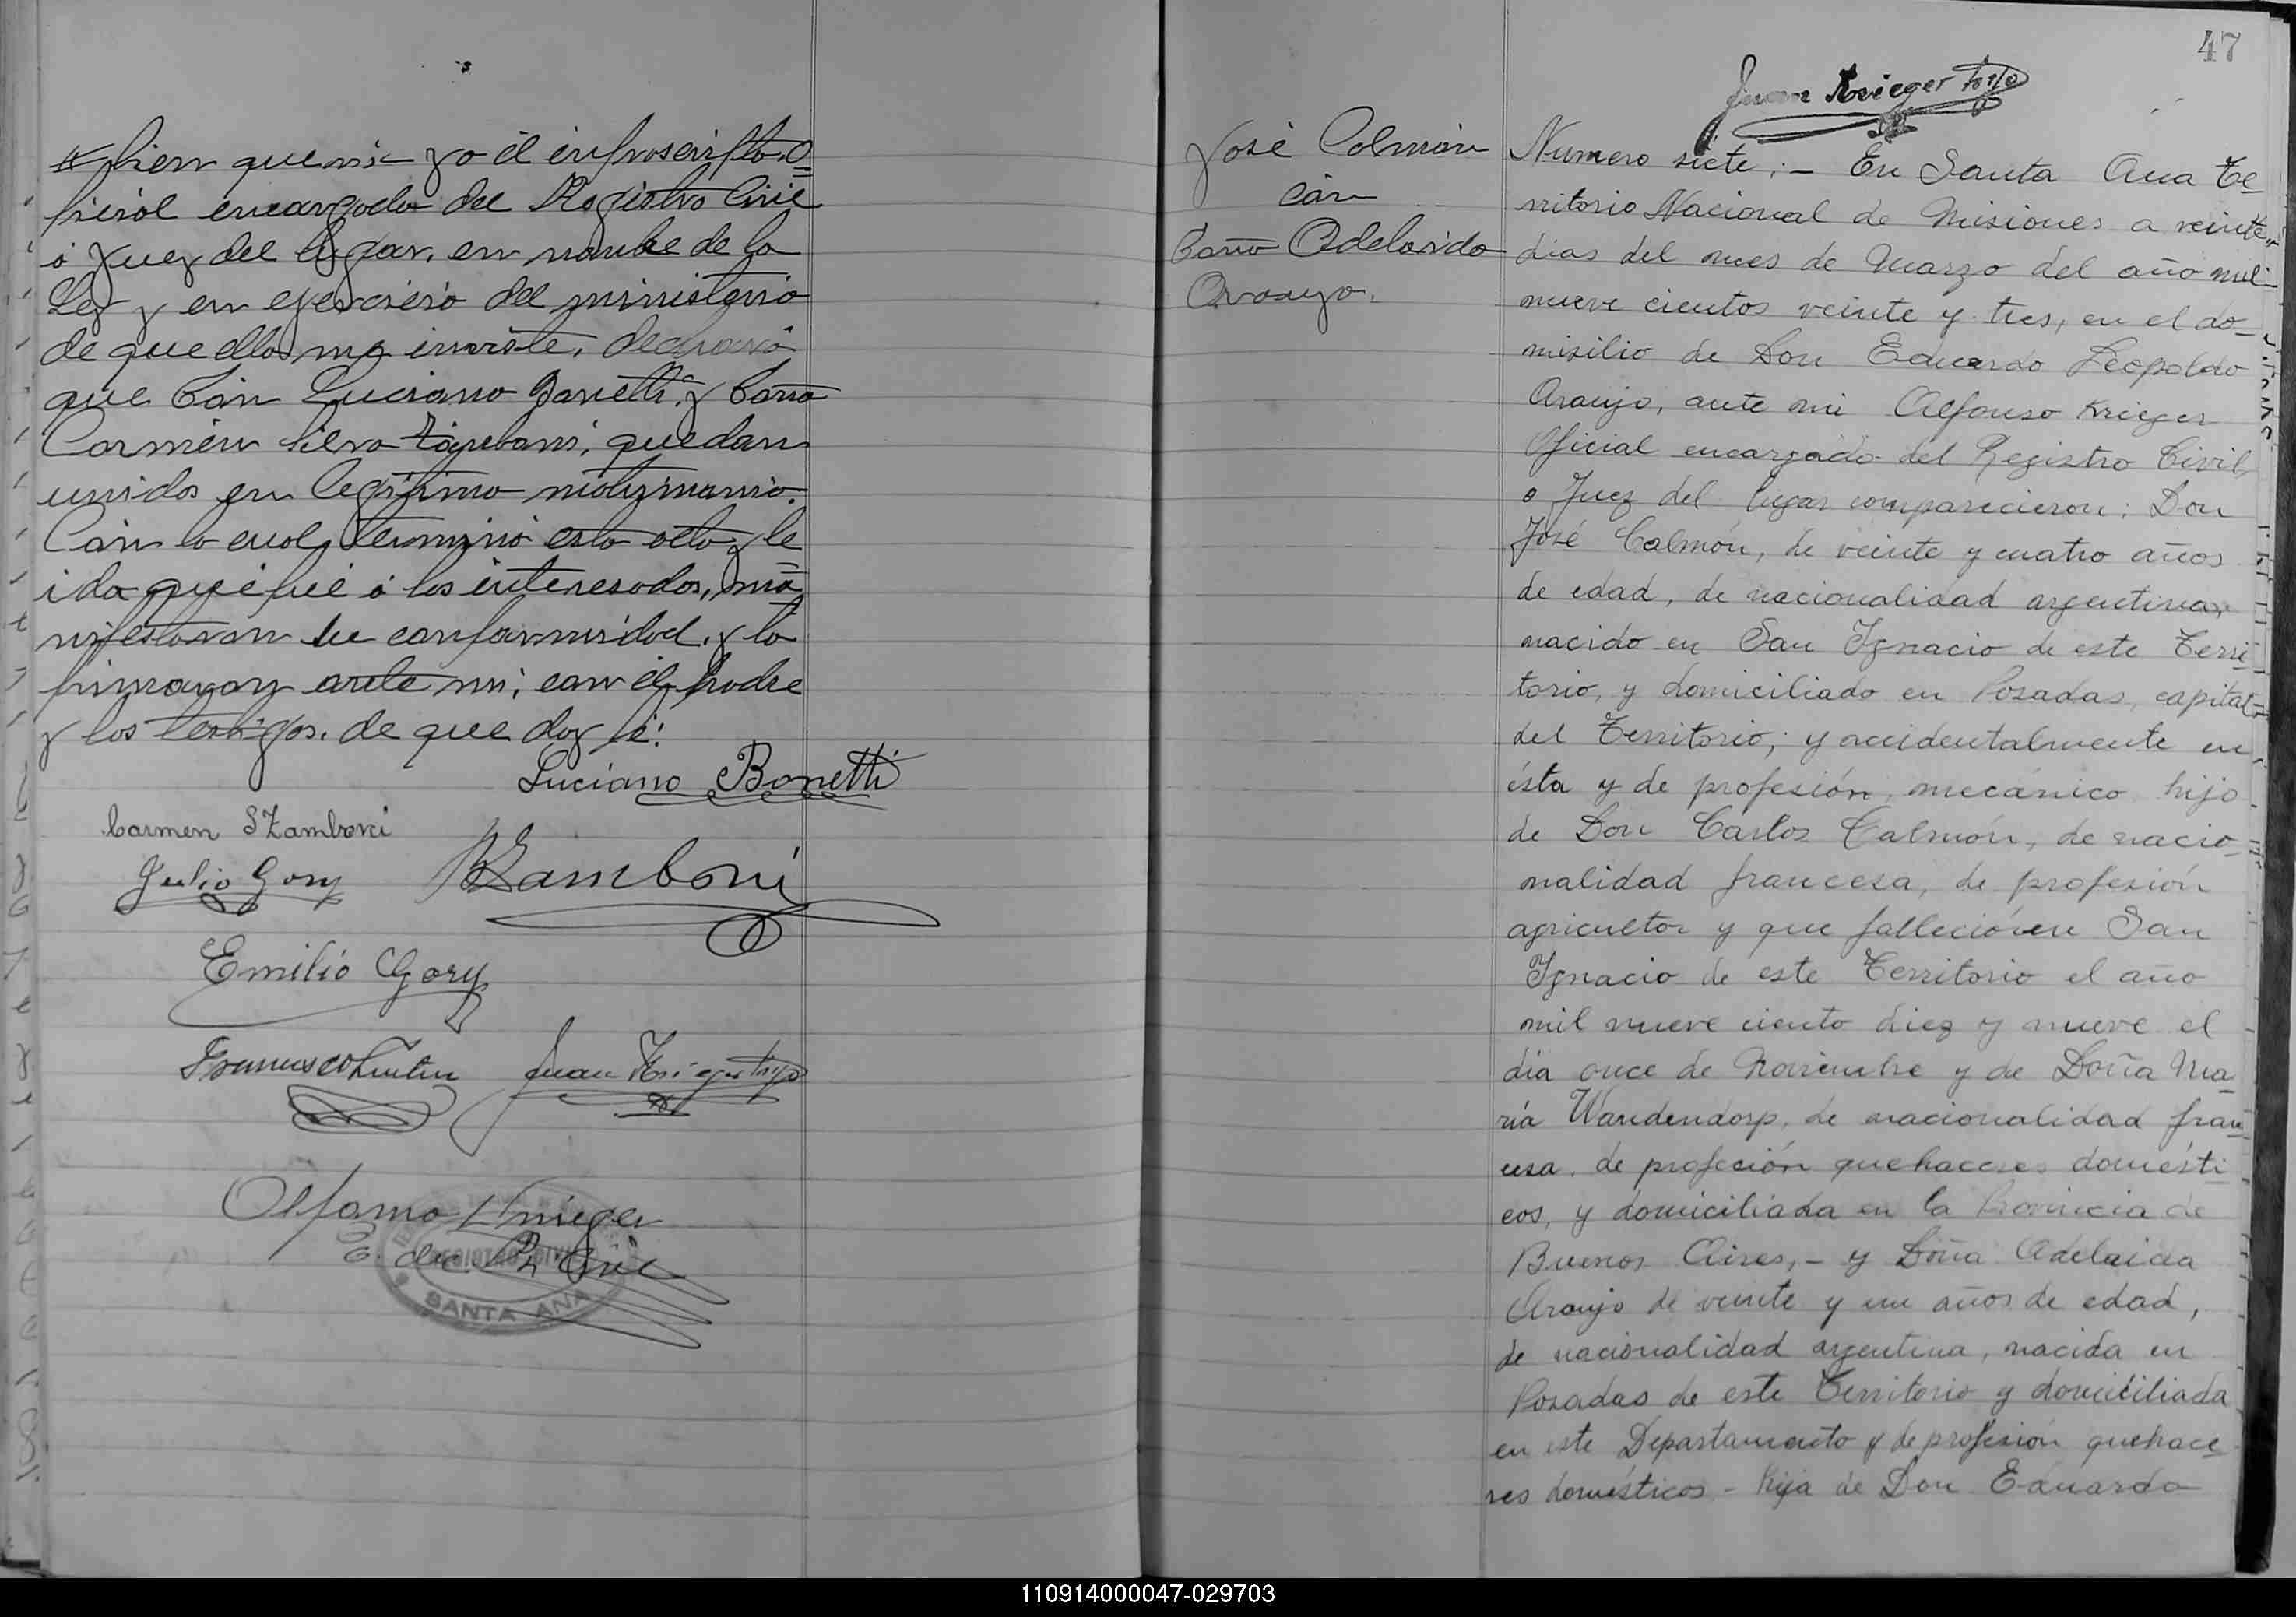 bien que mi yo el infroscripto O
ficiol encargodo del Registro Civil
ó Juez del lugar, en nombre de la
Ley y en ejercicio del ministerio
de que ella me inviste, declaro
que Don Luciano Bonetti y Doña
Carmen Silva Zamboni, quedan
unidos en legítimo motrimonio.
Con lo cuol, termino esto octo y le
ida que fué á los interesodos, ma
nifestoron su conformidod y la
firmaron ante mi, con el Padre
y los testigos, de que doy fé:
Luciano Bonetti
Carmen S Zamboni
Julio Gory Zamboni
Emilio Gory
Juan Krieger hijo
Alfonso Krieger
E. del R. Civil
REGISTRO CIVIL
SANTA ANA
47
Juan Krieger hijo
José Calmón
con
Doña Adelaida
Araujo.
Numero siete; - En Santa Ana Te
rritorio Nacional de Misiones a veinte
dias del mes de Marzo del año mil
nueve cientos veinte y tres, en el do-
misilio de Don Eduardo Leopoldo
Araujo, ante mi Alfonso Krieger
Oficial encargado del Registro Civil,
o Juez del lugar comparecieron: Don
José Calmón, de veinte y cuatro años
de edad, de nacionalidad argentina,
nacido en San Ignacio de este Terri
torio, y domiciliado en Posadas, capital
del Territorio; y accidentalmente en
ésta y de profesión, mecánico hijo
de Don Cárlos Calmón, de nacio-
nalidad francesa, de profesión
agricultor y que falleció en San
Ignacio de este Territorio el año
mil nueve ciento diez y nueve el
día once de Noviembre y de Doña Ma
ría Wandendorp, de nacionalidad fran
cesa, de profeción quehaceres domésti
cos, y domiciliada en la Provincia de
Buenos Aires, - y Doña Adelaida
Araujo de veinte y un años de edad,
de nacionalidad argentina, nacida en
Posadas de este Territorio y domiciliada
en este Departamento y de profesión quehace
res domésticos - hija de Don Eduardo
110914000047-029703